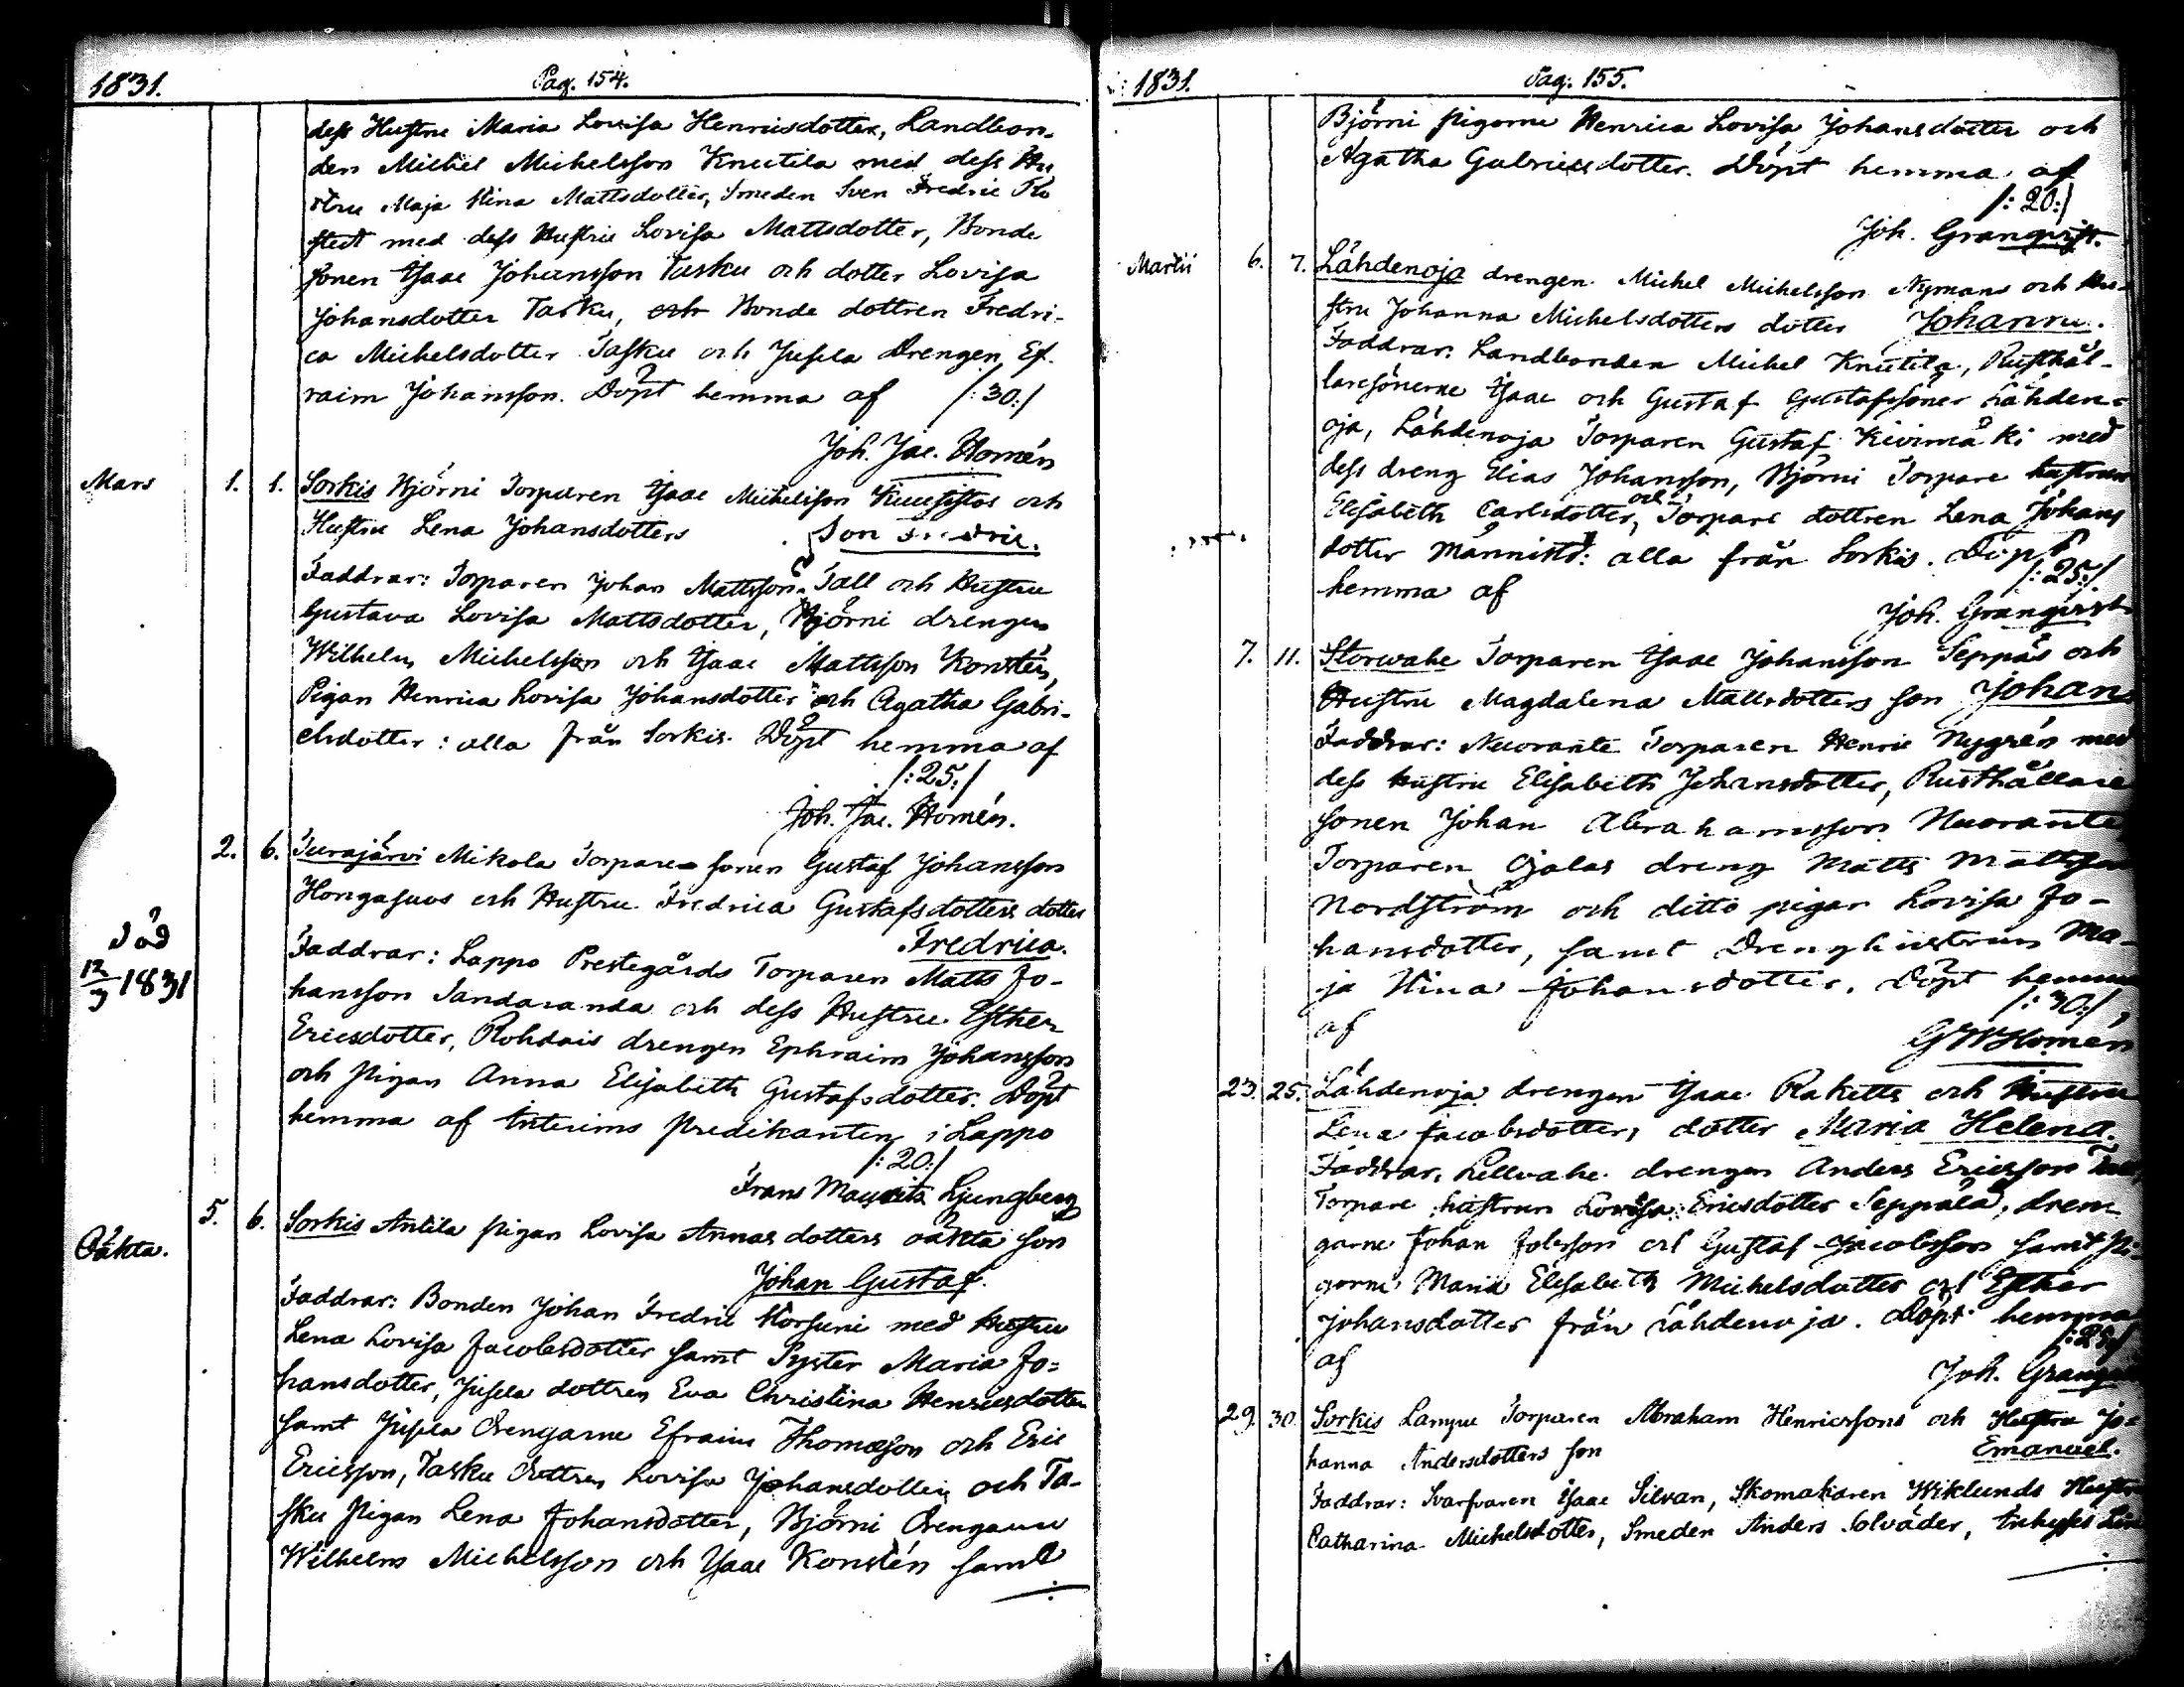 1831.
Pag. 154.
dess Hustru Maria Lovisa Henricsdotter, Landbon-
den Michel Michelsson Knutila med dess Hu
stru Maja Stina Mattsdotter, Smeden Sven Fredric Flo
stedt med dess Hustru Lovisa Mattsdotter, Bonde
sonen Isaac Johansson Tasku och dotter Lovisa
Johansdotter Tasku, och Bonde dottren Fredri-
ca Michelsdotter Tasku och Jusela Drengen Ef-
raim Johansson. Döpt hemma af /:30:/
Joh. Jac. Homén
Mars 1. 1. Sorkis Björni Torparen Isaac Michelsson och
Hustru Lena Johansdotters Son
Faddrar: Torparen Johan Mattsson Tall och Hustru
Gustava Lovisa Mattsdotter, Björni drengen
Wilhelm Michelsson och Isaac Mattsson Konstén,
Pigan Henrica Lovisa Johansdotter och Agatha Gabri-
elsdotter: alla från Sorkis. Döpt hemma af
/:25:/
Joh. Jac. Homén.
2. 6. Turajärvi Mikola Torpare sonen Gustaf Johansson
Hongasuos och Hustru Fredrica Gustafsdotters dotter
Fredrica.
Död
12/3 1831
Faddrar: Lappo Prestegårds Torparen Matts Jo-
hansson Sandaranda och dess Hustru Esther
Ericsdotter, Rohdais drengen Ephraim Johansson
och pigan Anna Elisabeth Gustafsdotter. Döpt
hemma af Interims predikanten i Lappo
/:20:/
Frans Mauritz Ljungberg
5. 6. Sorkis Antila pigan Lovisa Annas dotters oäkta son
Oäkta.
Johan Gustaf.
Faddrar: Bonden Johan Fredric Korsuni med Hustru
Lena Lovisa Jacobsdotter samt Syster Maria Jo=
hansdotter, Jusela dottren Eva Christina Henricsdotter
samt Jusela Drengarne Efraim Thomasson och Eric
Ericsson, Tasku dottren Lovisa Johansdotter och Ta-
sku pigan Lena Johansdotter, Björni Drengarne
Wilhelm Michelsson och Isaac Konstén samt
1831.
Pag. 155.
Björni pigorne Henrica Lovisa Johansdotter och
Agatha Gabrielsdotter. Döpt hemma af
/:20:/
Joh. Granqvist.
Martii 6. 7. Lähdenoja drengen Michel Michelsson Nymans och Hu-
stru Johanna Michelsdotters dotter Johanna.
Faddrar: Landbonden Michel Knutila, Rusthål-
laresönerne Isaac och Gustaf Gustafssöner Lähden-
oja, Lähdenoja Torparen Gustaf Kivimäki med
dess dreng Elias Johansson, Björni Torpare hustrun
Elisabeth Carlsdotter, och Torpare dottren Lena Johans
dotter Männistö: alla från Sorkis. Döpt
hemma af /:25:/
Joh. Granqvist
7. 11. Storwahe Torparen Isaac Johansson Seppäs och
Hustru Magdalena Mattsdotters son Johan
Faddrar: Nuorante Torparen Henric Nygrén med
dess hustru Elisabeth Johansdotter, Rusthållare
sonen Johan Abrahamsson Nuorante
Torparen Ojalas dreng Matts Mattsson
Nordström och ditto pigan Lovisa Jo-
hansdotter, samt Drenghustrun Ma-
ja Stina Johansdotter. Döpt hemma
af /:30:/
GWHomén
23. 25. Lähdenoja drengen Isaac Raketts och Hustru
Lena Jacobsdotters dotter Maria Helena.
Faddrar: Lillvahe drengen Anders Ericsson
Torpare hustrun Lovisa Ericsdotter Seppälä, dren-
garne Johan Jobsson och Gustaf Jacobsson samt pi-
gorne Maria Elisabeth Michelsdotter och Esther
Johansdotter från Lähdenoja. Döpt hemma
af /:25:/
Joh. Granqvist
29. 30. Sorkis Lampu Torparen Abraham Henricssons och Hustru Jo-
hanna Andersdotters son Emanuel.
Faddrar: Svarfvaren Isaac Silvan, Skomakaren Wiklunds Hustru
Catharina Michelsdotter, Smeden Anders Solväder, Inhyses